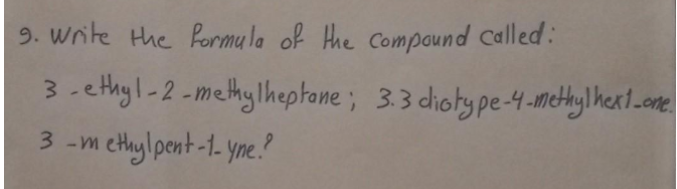 9. Write the formula of the compound called:
3-ethyl-2-methylheptane; 3.3 diotype-4-methylhex1-one.
3-methylpent-1-yne?